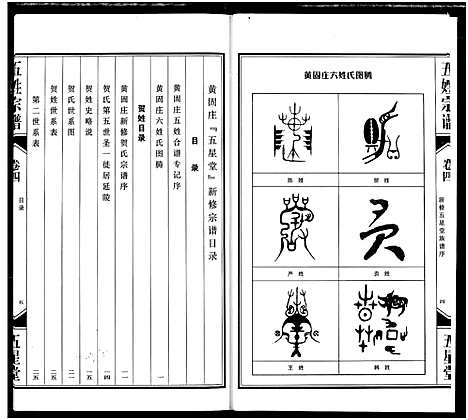 五姓宗谱
卷四
新修五星堂族谱序
四
五星堂
黄固庄六姓氏图腾
贺姓
陈姓
袁姓
严姓
韩姓
王姓
黄固庄『五星堂』新修宗谱目录
目录
黄固庄五姓合谱专记序 一
黄固庄六姓氏图腾
贺姓目录
黄固庄新修贺氏宗谱序 一一
贺氏第五世圣一徙居延陵 一四
贺姓史略说 一五
贺氏世系图
贺姓世系表 二五
第二世系表 二五
五姓宗谱
卷四
目录
五
五星堂